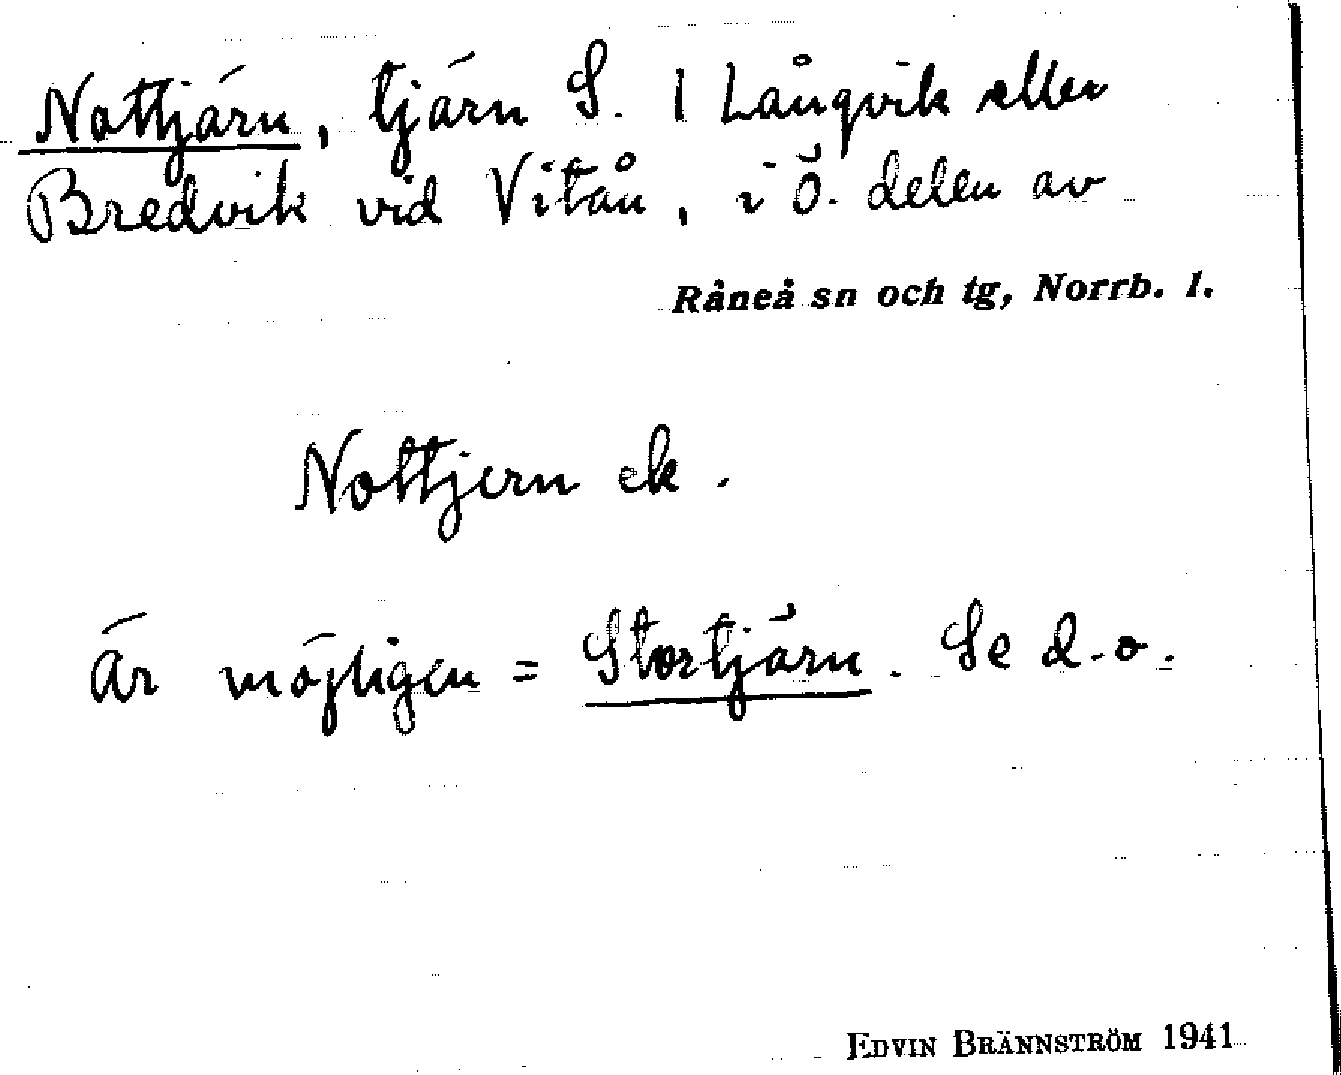 Nottjärn, tjärn S. I Långvik eller
Bredvik vid Vitån, i ö. delen av
Råneå sn och tg, Norrb. l.
Nottjern ek.
Är möjligen = Stortjärn. Se d.o.
EDVIN BRÄNNSTRÖM 1941